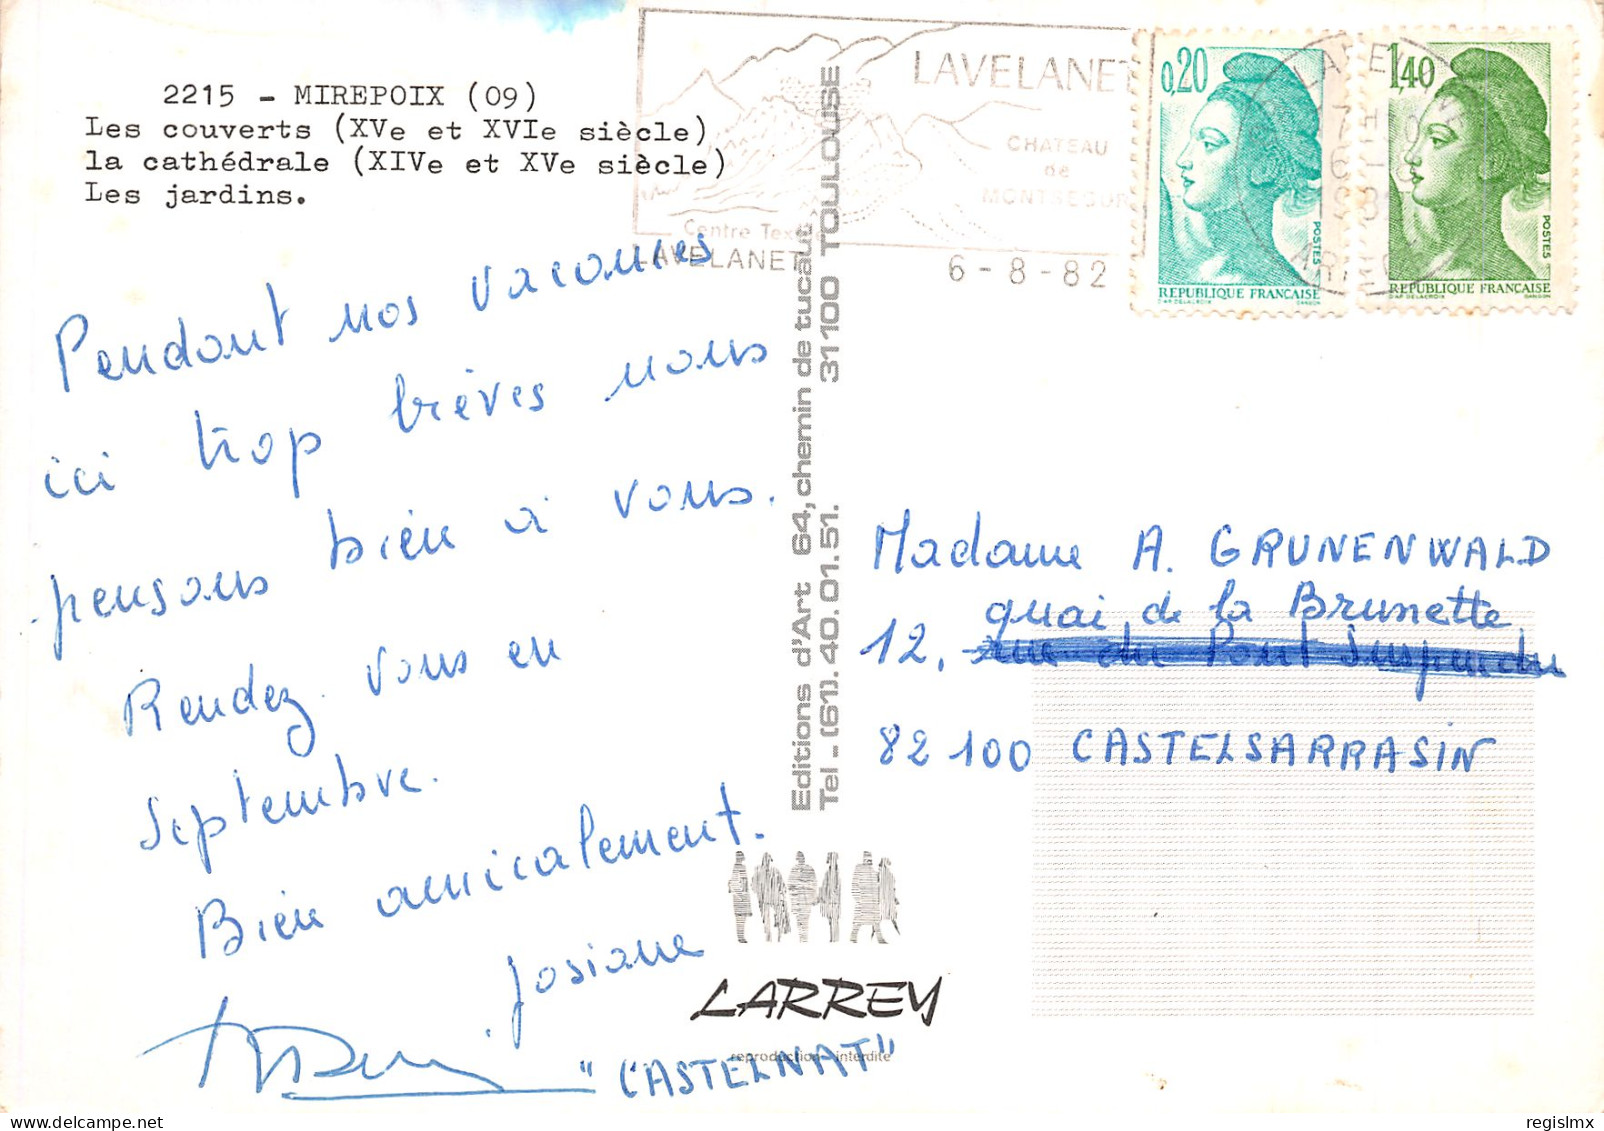 2215 - MIREPOIX (09)
Les couverts (XVe et XVIe siècle)
la cathédrale (XIVe et XVe siècle)
Les jardins.
LAVELANET
CHATEAU
de
MONTSEGUR
Centre Textile
LAVELANET
6-8-82
0,20
POSTES
REPUBLIQUE FRANÇAISE
D'AP. DELACROIX
GANDON
1,40
POSTES
REPUBLIQUE FRANÇAISE
D'AP. DELACROIX
GANDON
Pendant nos vacances
ici trop brèves nous
pensons bien à vous.
Rendez-vous en
Septembre.
Bien amicalement.
Josiane
"CASTELNAT"
Editions d'Art 64, chemin de tucaut,
Tel - (61). 40.01.51. 31100 TOULOUSE
LARREY
reproduction interdite
Madame A. GRUNENWALD
quai de la Brunette
12, rue du Pont Suspendu
82100 CASTELSARRASIN
regislmx